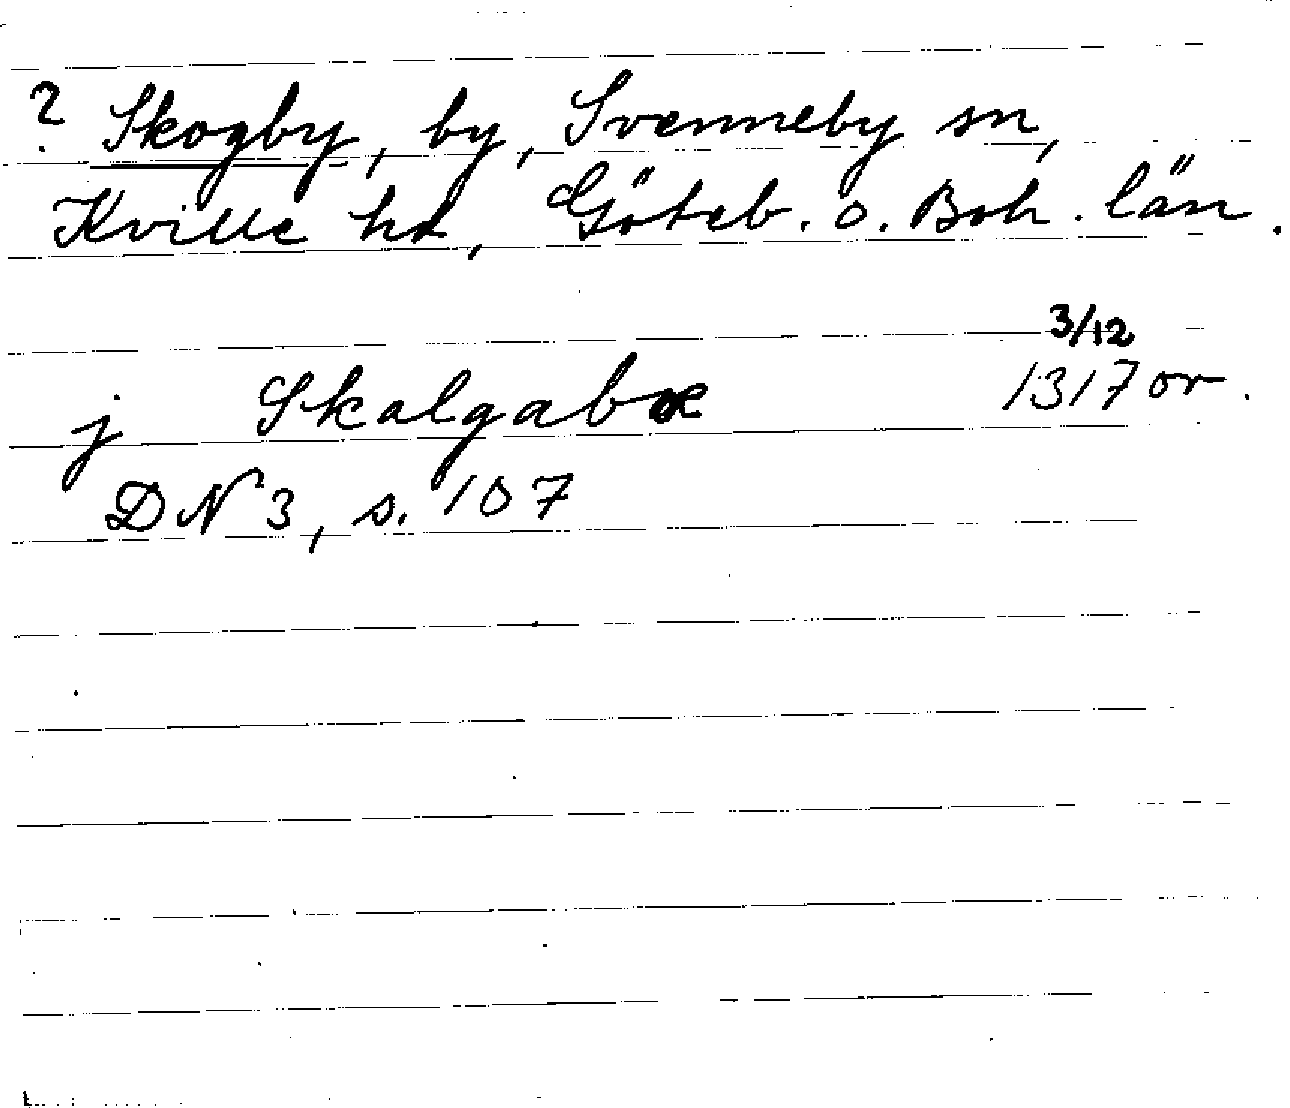 ? Skogby, by, Svenneby sn,
Kville hd, Göteb. o. Boh. län.
3/12
j Skalgabœ 1317 or.
DN 3, s. 107